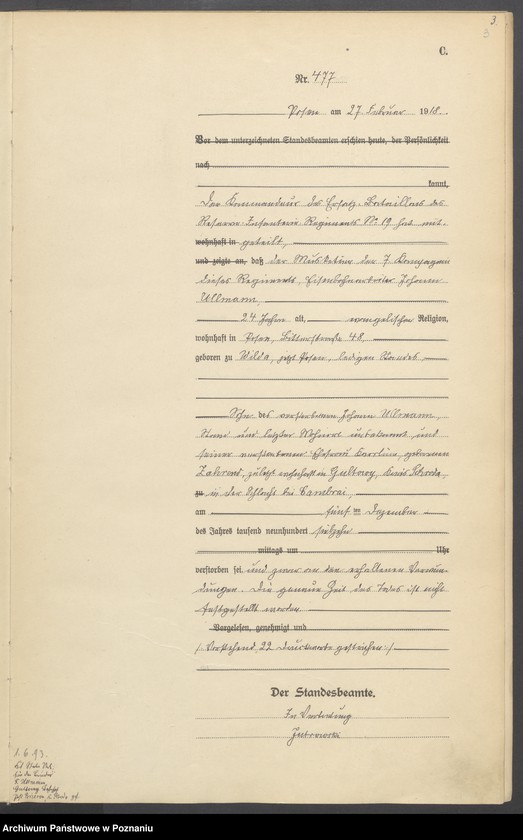 3.
3
C.
Nr. 477
Posen am 27 Februar 1918.
Vor dem unterzeichneten Standesbeamten erschien heute, der Persönlichkeit
nach
kannt,
Der Kommandeur des Ersatz-Bataillons des
Reserve-Infanterie-Regiments No 19 hat mit-
wohnhaft in geteilt,
und zeigte an, daß der Musketier der 7. Kompagnie
dieses Regiments, Eisenbahnarbeiter Johann
Ullmann,
24 Jahre alt, evangelischer Religion,
wohnhaft in Posen, 48,
geboren zu Wilda, jetzt Posen, ledigen Standes,
Sohn des verstorbenen Johann Ullmann,
Stand und letzter Wohnort unbekannt, und
seiner verstorbenen Ehefrau Karoline, geborenen
zuletzt wohnhaft in Kreis Schroda,
zu in der Schlacht bei Cambrai,
am fünften Dezember
des Jahres tausend neunhundert siebzehn
mittags um Uhr
verstorben sei, und zwar an den erhaltenen Verwun-
dungen. Die genaue Zeit des Todes ist nicht
festgestellt worden.
Vorgelesen, genehmigt und
/: Vorstehend 22 Druckworte gestrichen :/
Der Standesbeamte.
In Vertretung
1. 6. 43.
Ullmann
Archiwum Państwowe w Poznaniu